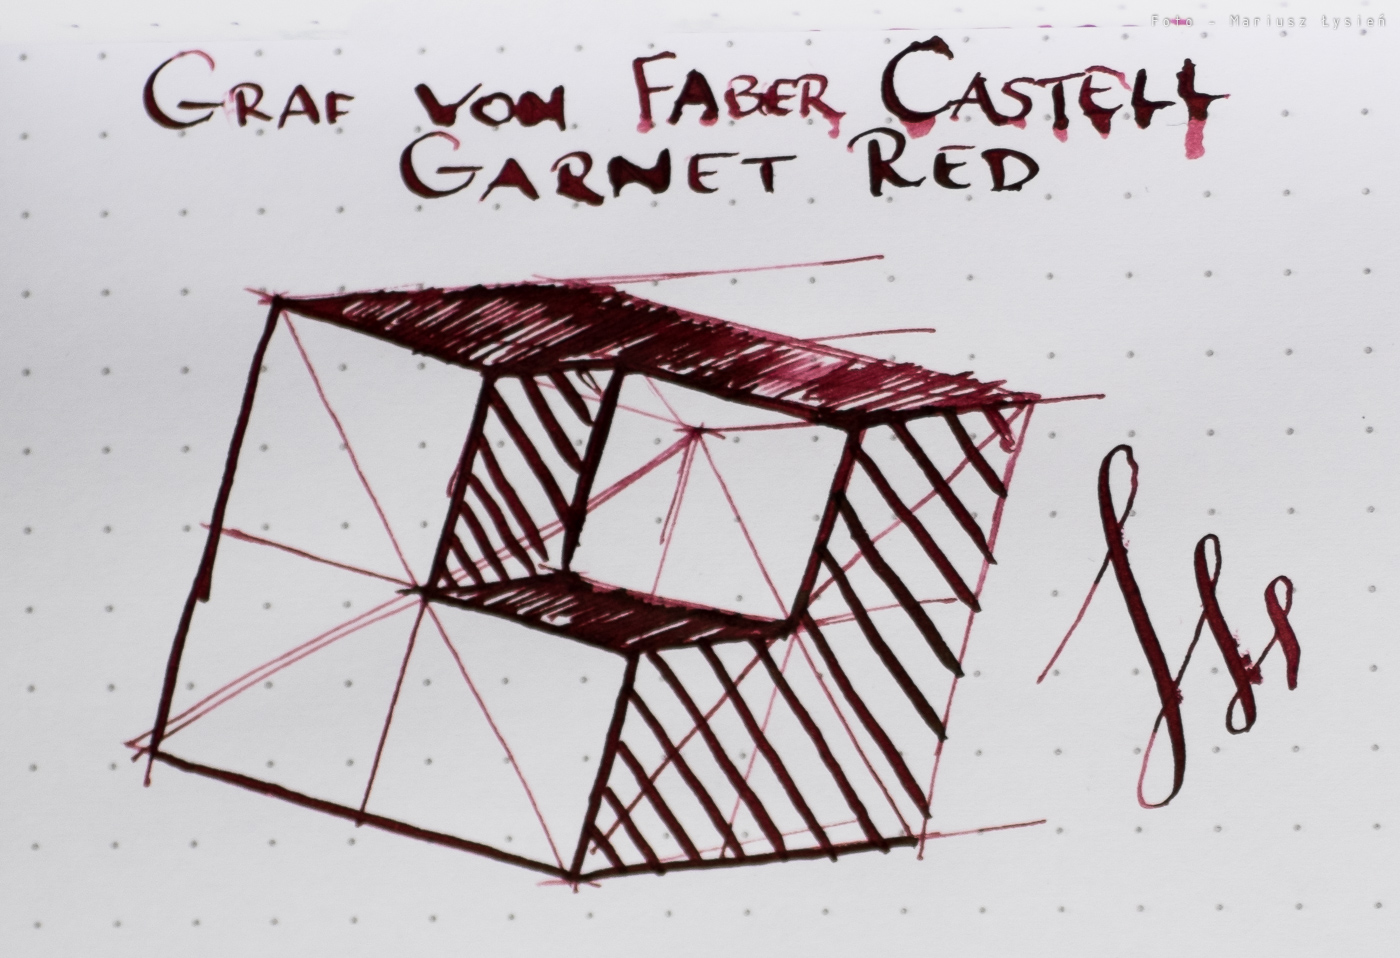 Foto - Mariusz Łysień
GRAF VON FABER CASTELL
GARNET RED